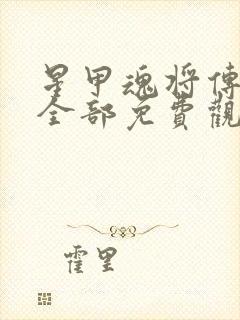 星甲魂将傳
全部免費觀
霍里